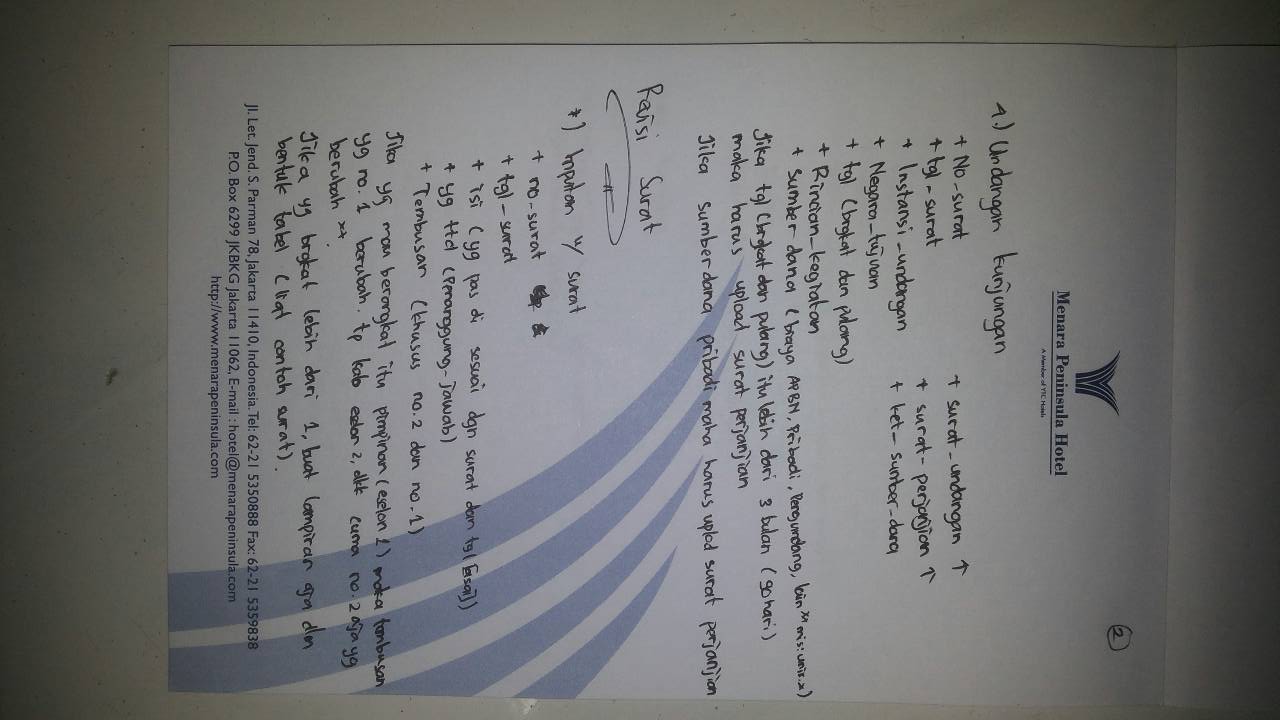 2
Menara Peninsula Hotel
A Member of YTC Hotels
4.) Undangan kunjungan
+ No-surat
+ surat-undangan ↑
+ tgl-surat
+ surat-perjanjian ↑
+ Instansi-undangan
+ ket-sumber-dana
+ Negara-tujuan
+ tgl (brgkat dan pulang)
+ Rincian-kegiatan
+ Sumber dana (biaya APBN, Pribadi, Pengundang, lain²× mis: univ.x)
Jika tgl (brgkat dan pulang) itu lebih dari 3 bulan (90 hari)
maka harus upload surat perjanjian
Jika sumber dana pribadi maka harus uplod surat perjanjian
Revisi Surat
*) Inputan u/ surat
+ no-surat
+ tgl-surat
+ isi (yg pas di sesuai dgn surat dan tgl)
+ yg ttd (Penanggung-jawab)
+ Tembusan (khusus no.2 dan no.1)
Jika yg mau berangkat itu pimpinan (eselon 1) maka tembusan
yg no. 1 berubah. tp kalo eselon 2, dkk cuma no. 2 aja yg
berubah **
Jika yg brgkat lebih dari 1, buat lampiran gra dlm
bentuk tabel (liat contoh surat).
Jl. Let. Jend. S. Parman 78, Jakarta 11410, Indonesia. Tel: 62-21 5350888 Fax: 62-21 5359838
P.O. Box 6299 JKBKG Jakarta 11062, E-mail : hotel@menarapeninsula.com
http://www.menarapeninsula.com